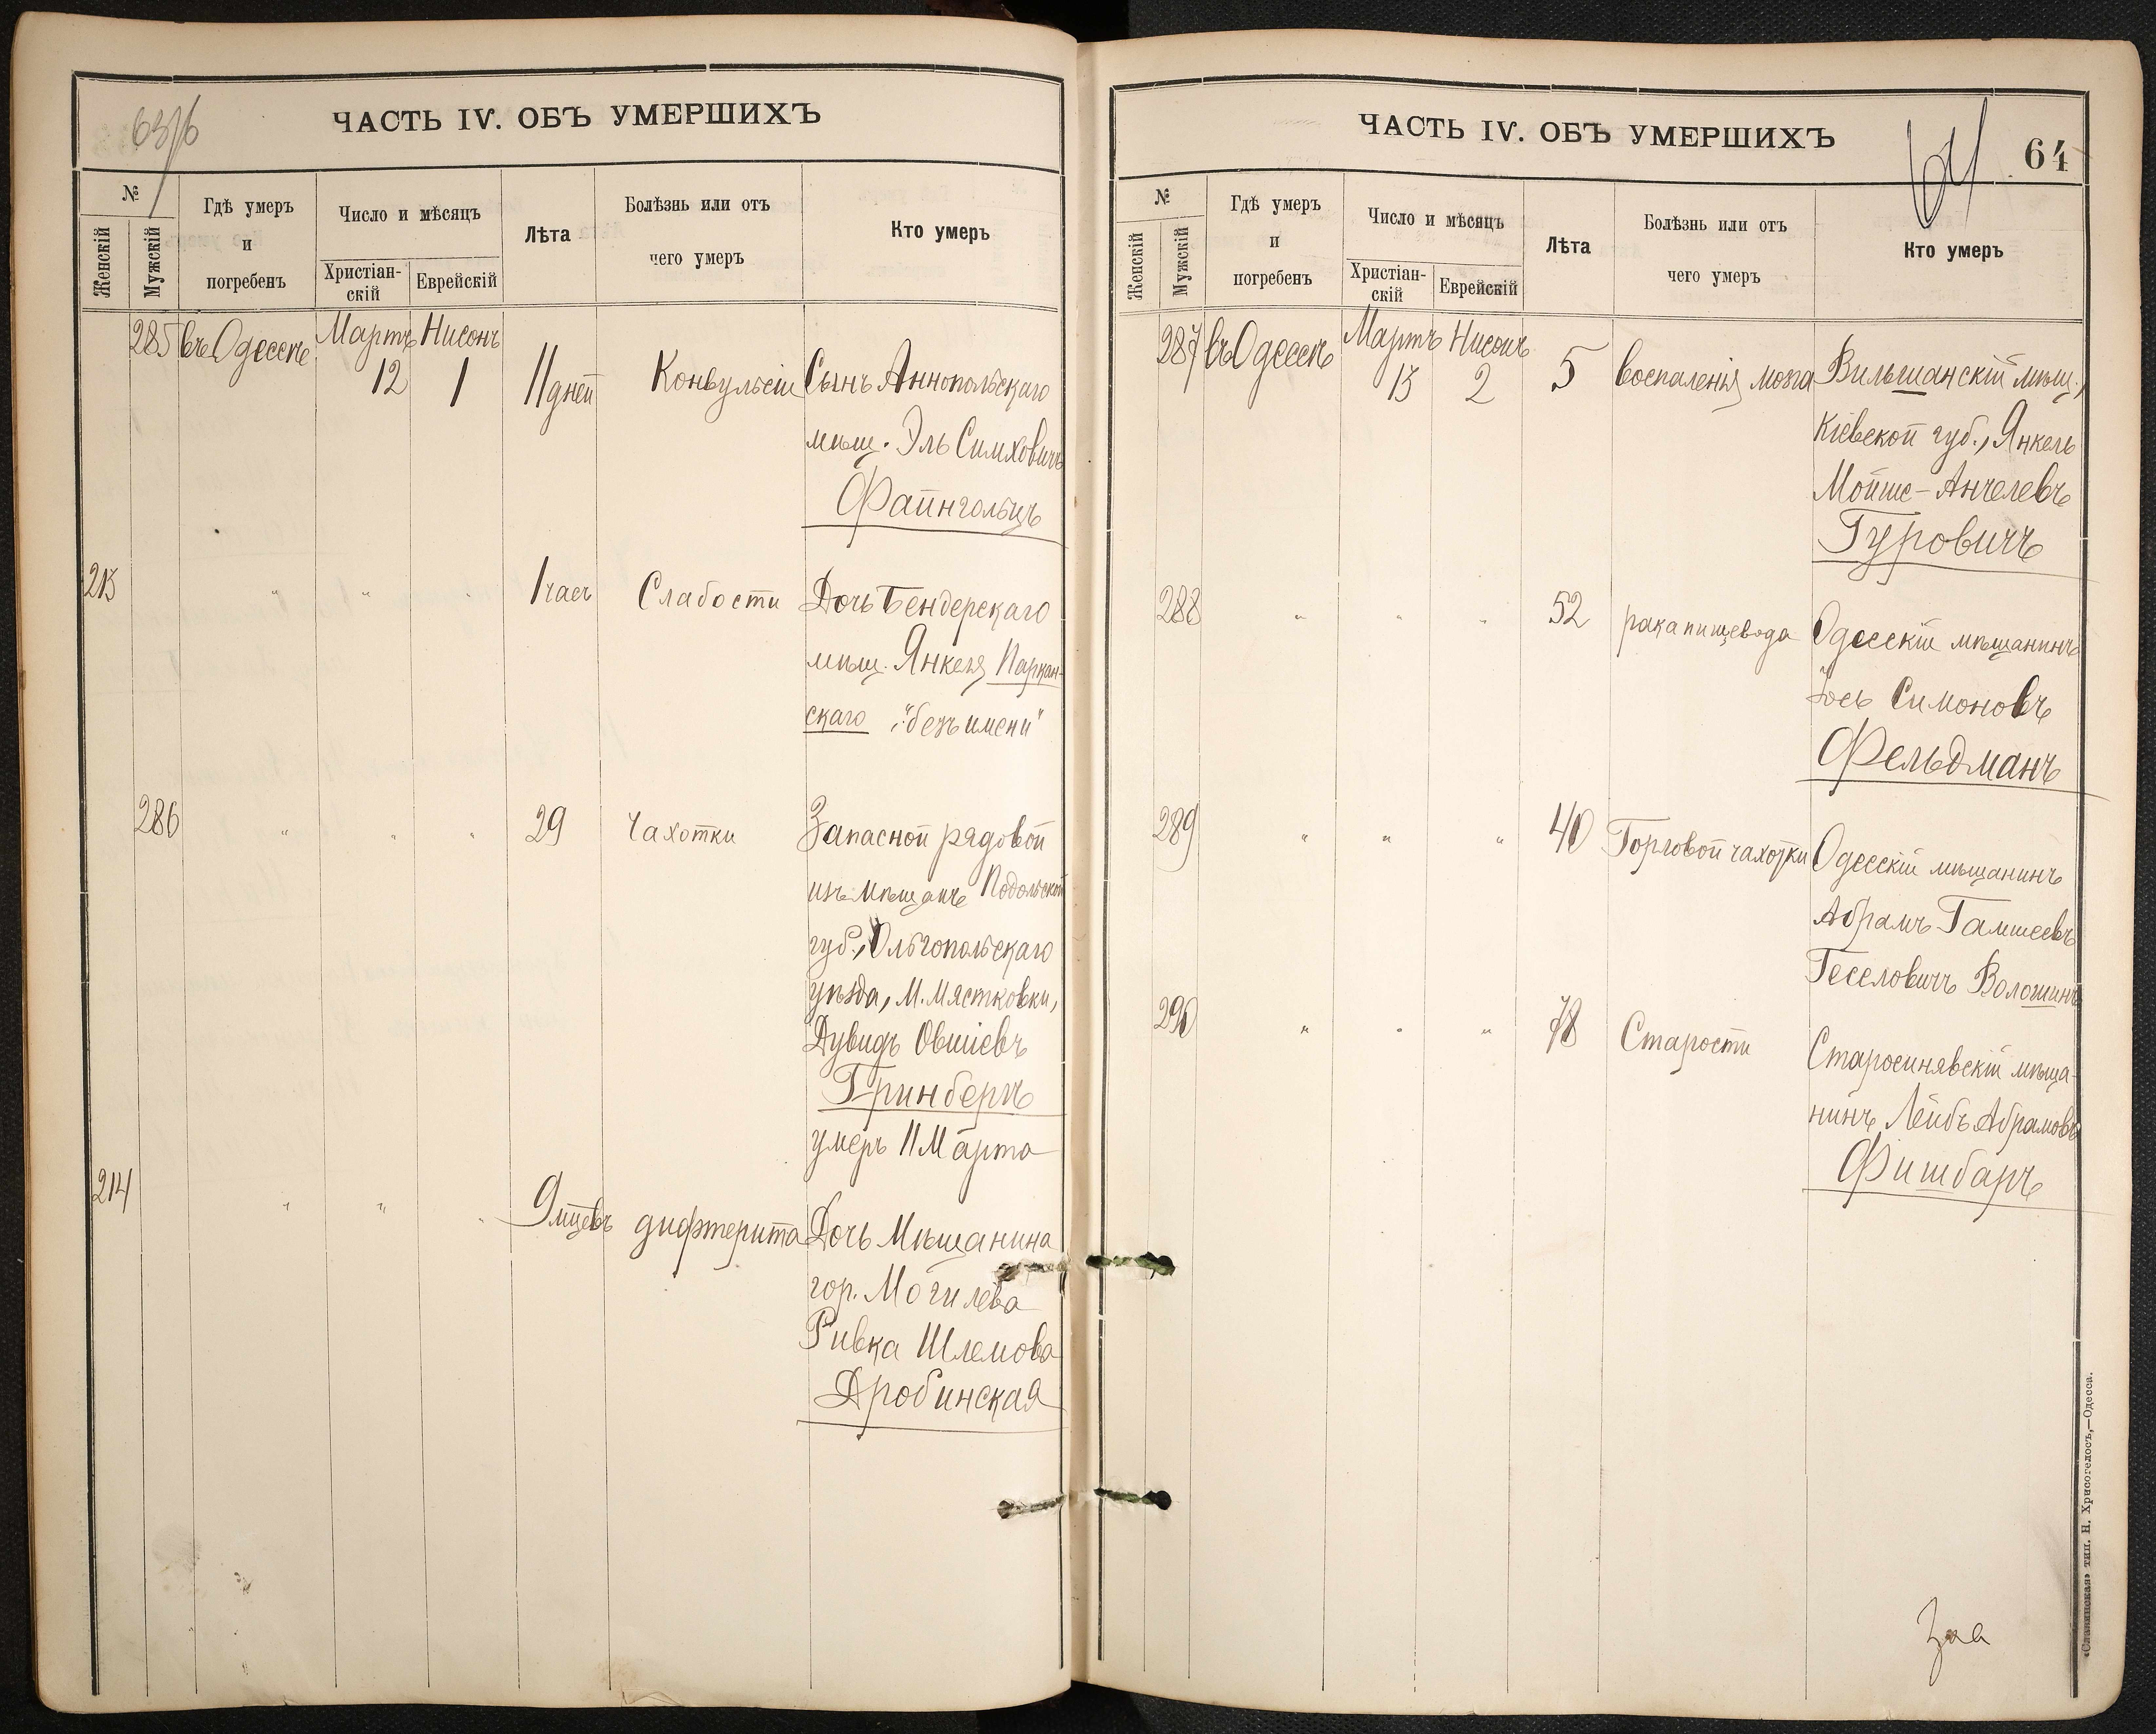 63/б
ЧАСТЬ IV. ОБЪ УМЕРШИХЪ
№
Женскій
Мужскій
Гдѣ умеръ
и
погребенъ
Число и мѣсяцъ
Христіан-
скій
Еврейскій
Лѣта
Болѣзнь или отъ
чего умеръ
Кто умеръ
285 въ Одессѣ Мартъ Нисонъ
12 1 11 дней Конвульсіи Сынъ Аннопольскаго
мѣщ. Эль Симховичъ
Файнгольцъ
213 " " " 1 часъ Слабости Дочь Бендерскаго
мѣщ. Янкеля Паркан-
скаго "безъ имени"
286 " " " 29 Чахотки Запасной рядовой
изъ мѣщанъ Подольской
губ., Ольгопольскаго
уѣзда, м. Мястковки,
Дувидъ Овшіевъ
Гринбергъ
умеръ 11 Марта
214 " " " 9 мцевъ дифтерита Дочь Мѣщанина
гор. Могилева
Ривка Шлемова
Дробинская
ЧАСТЬ IV. ОБЪ УМЕРШИХЪ
64
64
№
Женскій
Мужскій
Гдѣ умеръ
и
погребенъ
Число и мѣсяцъ
Христіан-
скій
Еврейскій
Лѣта
Болѣзнь или отъ
чего умеръ
Кто умеръ
287 въ Одессѣ Мартъ Нисонъ
13 2 5 воспаленія мозга Вильшанскій мѣщ.,
Кіевской губ., Янкель
Мойше-Анчелевъ
Гуровичъ
288 " " " 52 рака пищевода Одесскій мѣщанинъ
Іось Симоновъ
Фельдманъ
289 " " " 40 Горловой чахотки Одесскій мѣщанинъ
Абрамъ Гамшеевъ
Геселовичъ Волошинъ
290 " " " 78 Старости Старосинявскій мѣща-
нинъ Лейбъ Абрамовъ
Фишбаръ
«Славянская» тип. Н. Хрисогелосъ,—Одесса.